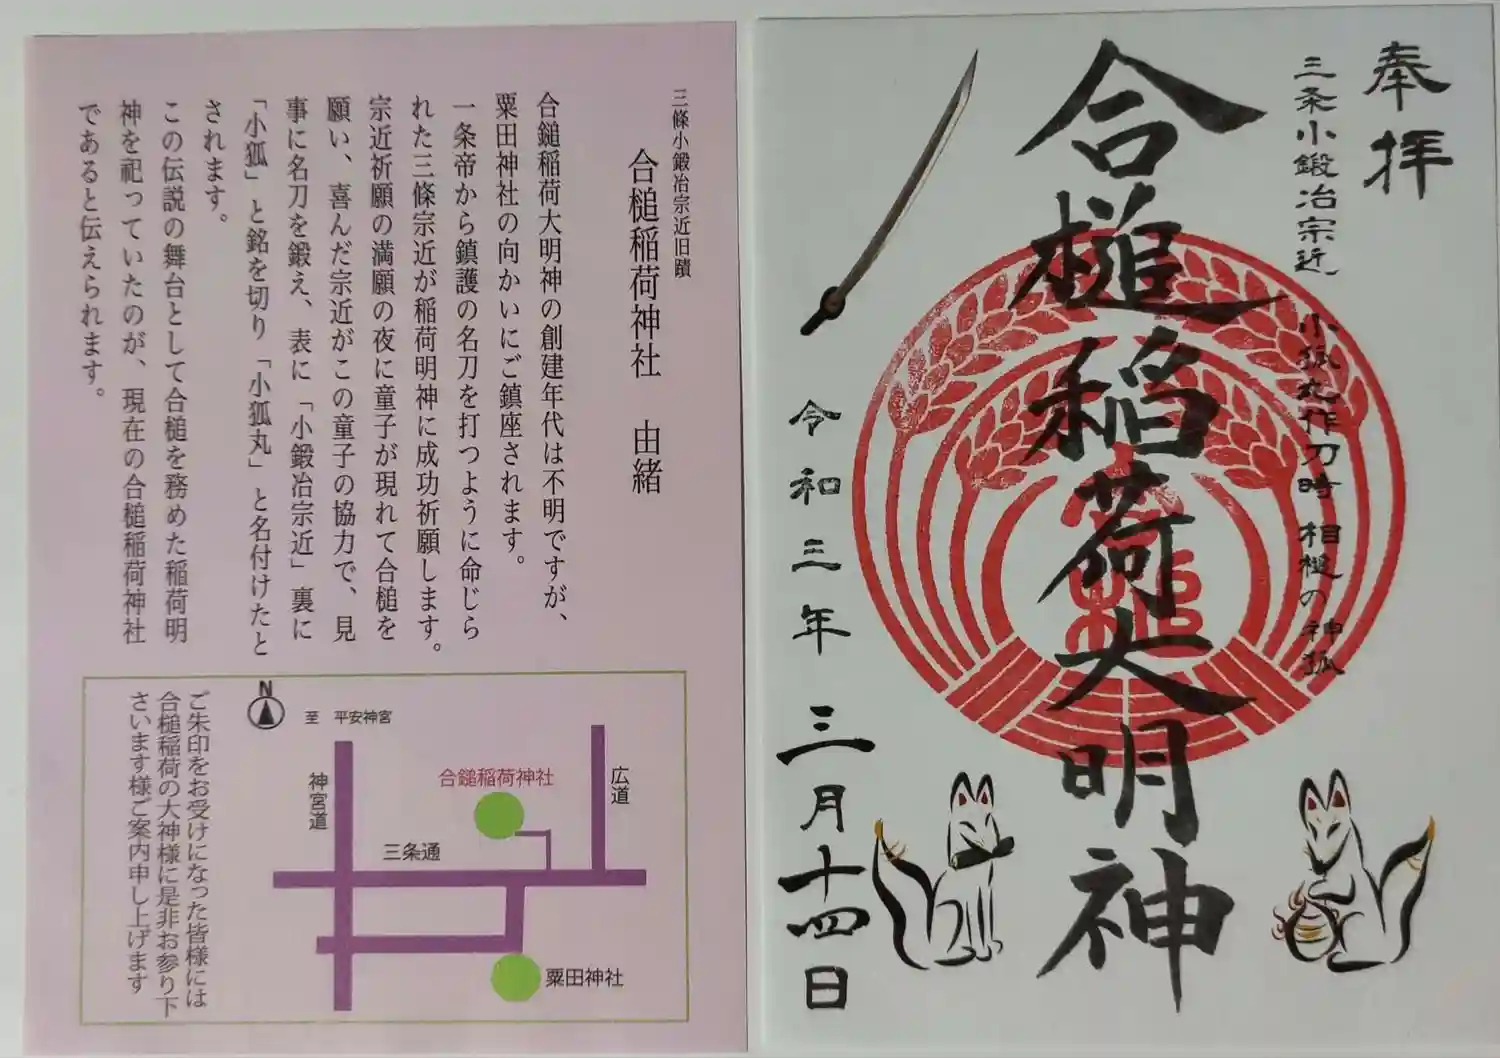 三條小鍛冶宗近旧蹟
合槌稲荷神社　由緒
合鎚稲荷大明神の創建年代は不明ですが、
粟田神社の向かいにご鎮座されます。
一条帝から鎮護の名刀を打つように命じら
れた三條宗近が稲荷明神に成功祈願します。
宗近祈願の満願の夜に童子が現れて合槌を
願い、喜んだ宗近がこの童子の協力で、見
事に名刀を鍛え、表に「小鍛冶宗近」裏に
「小狐」と銘を切り「小狐丸」と名付けたと
されます。
この伝説の舞台として合槌を務めた稲荷明
神を祀っていたのが、現在の合槌稲荷神社
であると伝えられます。
N
至　平安神宮
神宮道
合鎚稲荷神社
広道
三条通
粟田神社
ご朱印をお受けになった皆様には
合槌稲荷の大神様に是非お参り下
さいます様ご案内申し上げます
奉拝
三条小鍛冶宗近　小狐丸作刀時　相槌の神狐
合槌稲荷大明神
令和三年　三月十四日